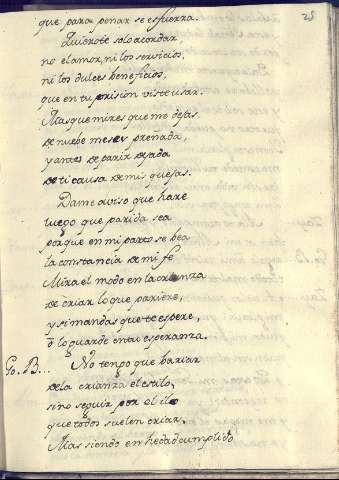 25
que para penar se esfuerza.
Quierote solo acordar
no el amor, ni los servicios,
ni los dulces beneficios,
que en tu prision viste usar.
Mas que mires que me dejas
de nuebe meses preñada,
y antes de parir dejada
de ti causa de mis quejas.
Dame aviso que hare
luego que parida sea
porque en mi parto se bea
la constancia de mi fe
Mira el modo en la crianza
de criar lo que pariere,
y si mandas que te espere,
o lo guarde en tu esperanza.
Go. B... No tengo que bariar
de la crianza el estilo,
sino seguir por el ilo
que todos suelen criar,
Mas siendo en hedad cumplido